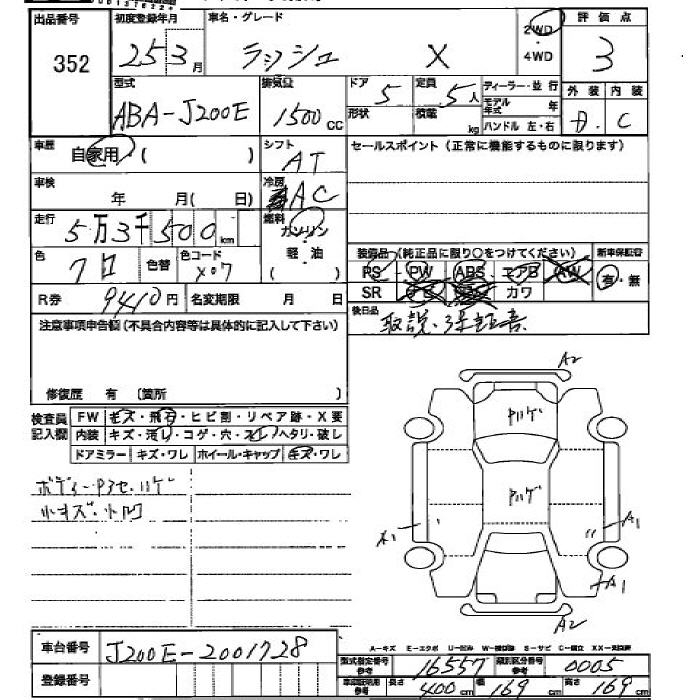 出品番号 初度登録年月 車名・グレード 2WD・4WD 評価点
352 25 3月 ラッシュ X 3
型式 排気量 ドア 定員 ディーラー・並行 外装 内装
ABA-J200E 1500cc 5 5人 モデル年式 年 D. C
形状 積載 kg ハンドル 左・右
車歴 自家用 ( ) シフト AT セールスポイント (正常に機能するものに限ります)
車検 年 月( 日) 冷房 AC
走行 5万3千500km 燃料 ガソリン・軽油 ( )
色 クロ 色替 色コード X07 装備品 (純正品に限り○をつけてください) 新車保証書
PS PW ABS エアB AW 有・無
R券 9410円 名変期限 月 日 SR カワ
注意事項申告欄 (不具合内容等は具体的に記入して下さい) 後日品 取説・保証書
修復歴 有 (箇所 )
検査員記入欄 FW キズ・飛石・ヒビ割・リペア跡・X要
内装 キズ・汚し・コゲ・穴・スレ・ヘタリ・破し
ドアミラー キズ・ワレ ホイール・キャップ キズ・ワレ
小キズ・小凹
A2
Pハゲ
Pハゲ
A1 A1
A1
A2
車台番号 J200E-2001728
A-キズ E-エクボ U-凹み W-補修跡 S-サビ C-腐立 XX-交換済
登録番号 型式指定番号 参考 16557 類別区分番号 参考 0005
車庫証明用 参考 長さ 400cm 幅 169cm 高さ 169cm